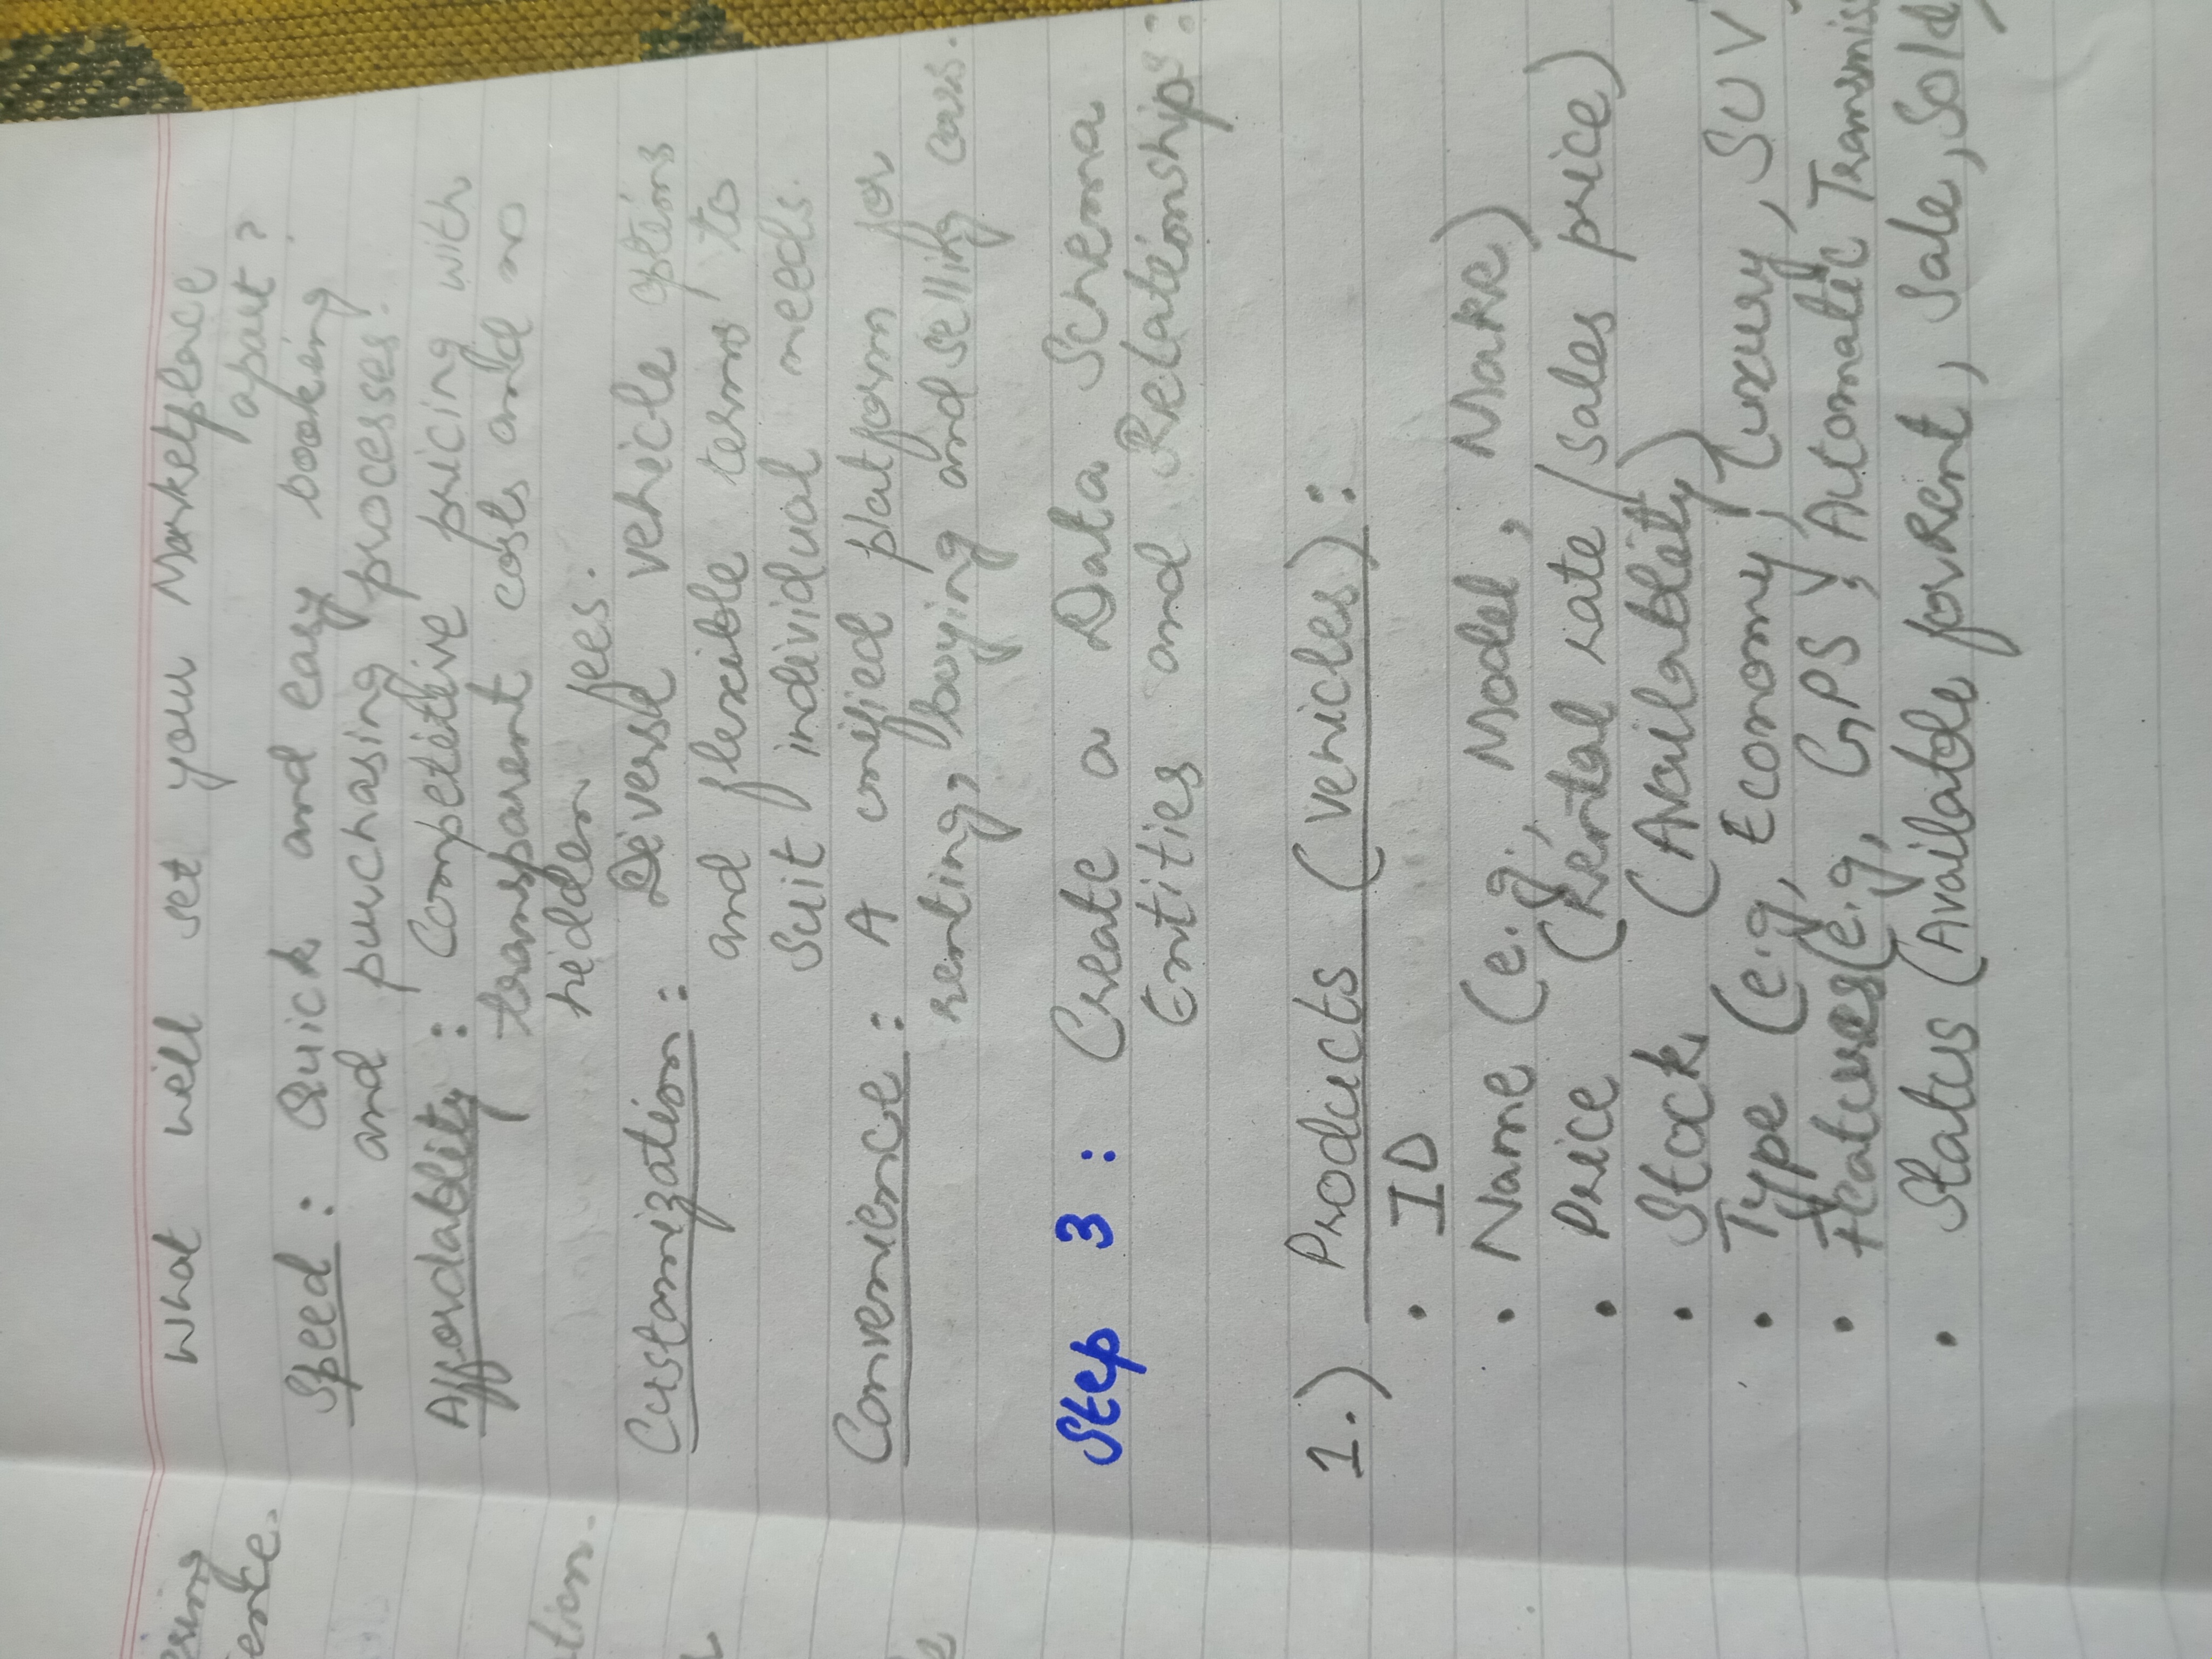 ering
ence.
tion.
What will set your Marketplace
apart?
Speed : Quick and easy booking
and purchasing processes.
Affordablity : Competitive pricing with
transparent costs and no
hidden fees.
Customization : Diverse vehicle options
and flexible terms to
suit individual needs.
Convenience : A unified platform for
renting, buying and selling cars.
Step 3 : Create a Data Schema
Entities and Relationships :
1.) Products (vehicles) :
• ID
• Name (e.g., Model, Make)
• Price (Rental rate/sales price)
• Stock (Availablity)
• Type (e.g, Economy, Luxury, SUV,
• Features(e.g, GPS, Automatic Transmiss
• Status (Available for Rent, Sale, Sold)